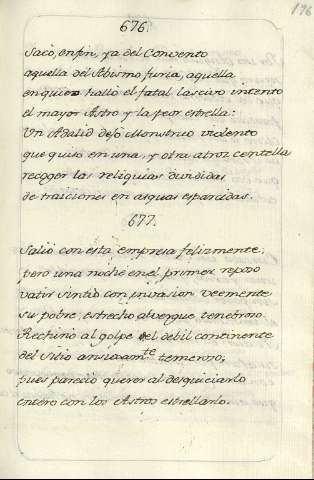 676.
176
Sacò, enfin, ya del Convento
aquella del Abismo furia, aquella
en quien hallò el fatal lascivo intento
el mayor Astro y la peor estrella:
Un Adalid desò Monstruo violento
que quiso en una, y otra atroz centella
recoger las reliquias divididas
de traiciones en asquas esparcidas.
677.
Saliò con esta empresa felizmente,
pero una noche en el primer reposo
vatir sintiò con invasion veemente
su pobre, estrecho alvergue tenebroso.
Rechinò al golpe del debil continente
del Sitio ansiosamte temeroso,
pues pareciò querer al desquiciarlo
entero con los Astros estrellarlo.